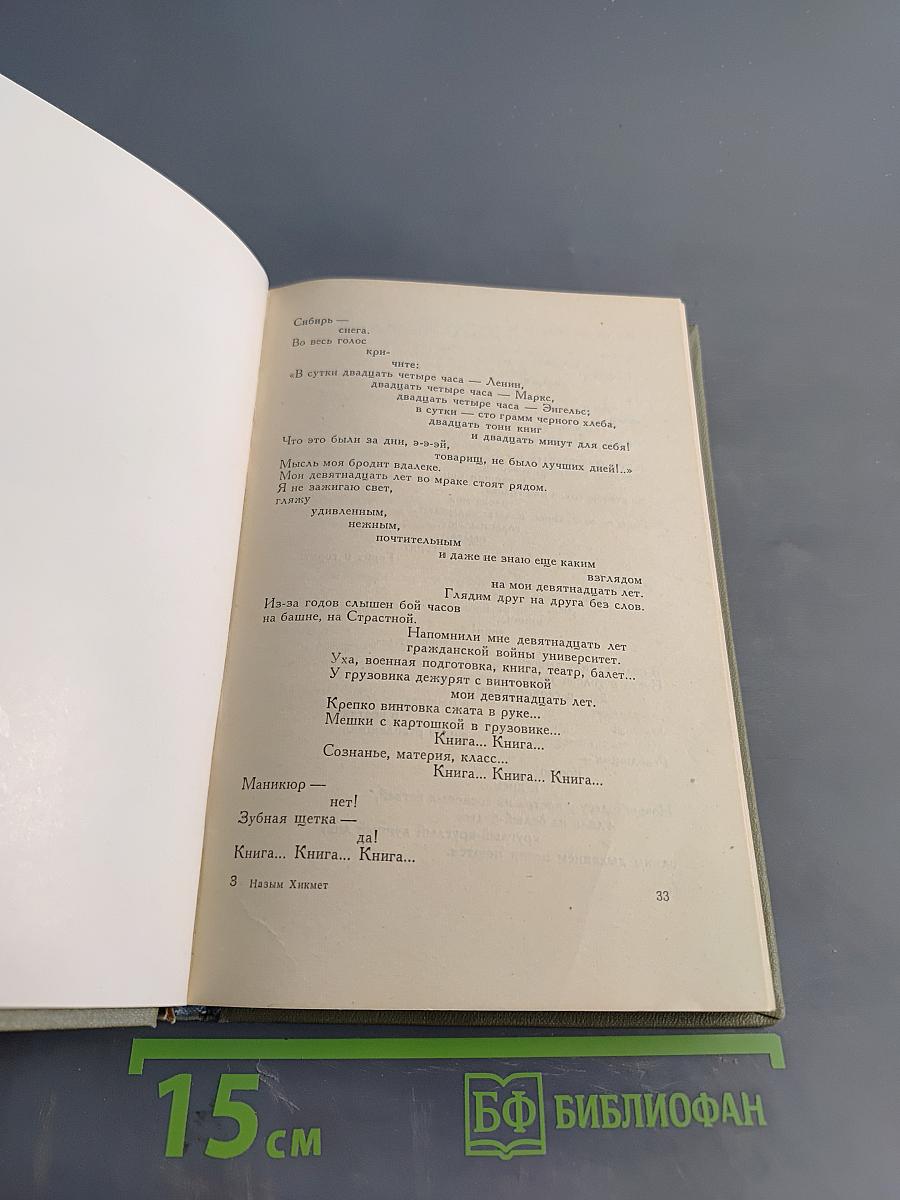 Сибирь —
снега.
Во весь голос
кри-
чите:
«В сутки двадцать четыре часа — Ленин,
двадцать четыре часа — Маркс,
двадцать четыре часа — Энгельс;
в сутки — сто грамм черного хлеба,
двадцать тонн книг
и двадцать минут для себя!
Что это были за дни, э-э-эй,
товарищ, не было лучших дней!..»
Мысль моя бродит вдалеке.
Мои девятнадцать лет во мраке стоят рядом.
Я не зажигаю свет,
гляжу
удивленным,
нежным,
почтительным
и даже не знаю еще каким
взглядом
на мои девятнадцать лет.
Глядим друг на друга без слов.
Из-за годов слышен бой часов
на башне, на Страстной.
Напомнили мне девятнадцать лет
гражданской войны университет.
Уха, военная подготовка, книга, театр, балет...
У грузовика дежурят с винтовкой
мои девятнадцать лет.
Крепко винтовка сжата в руке...
Мешки с картошкой в грузовике...
Книга... Книга...
Сознанье, материя, класс...
Книга... Книга... Книга...
Маникюр —
нет!
Зубная щетка —
да!
Книга... Книга... Книга...
3 Назым Хикмет
33
15 см
БФ БИБЛИОФАН